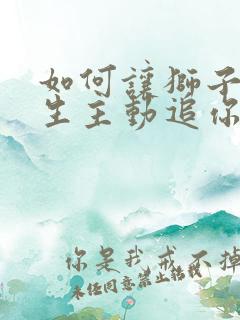 如何讓獅子
生主動追你
你是我戒不掉
未經同意禁止轉載